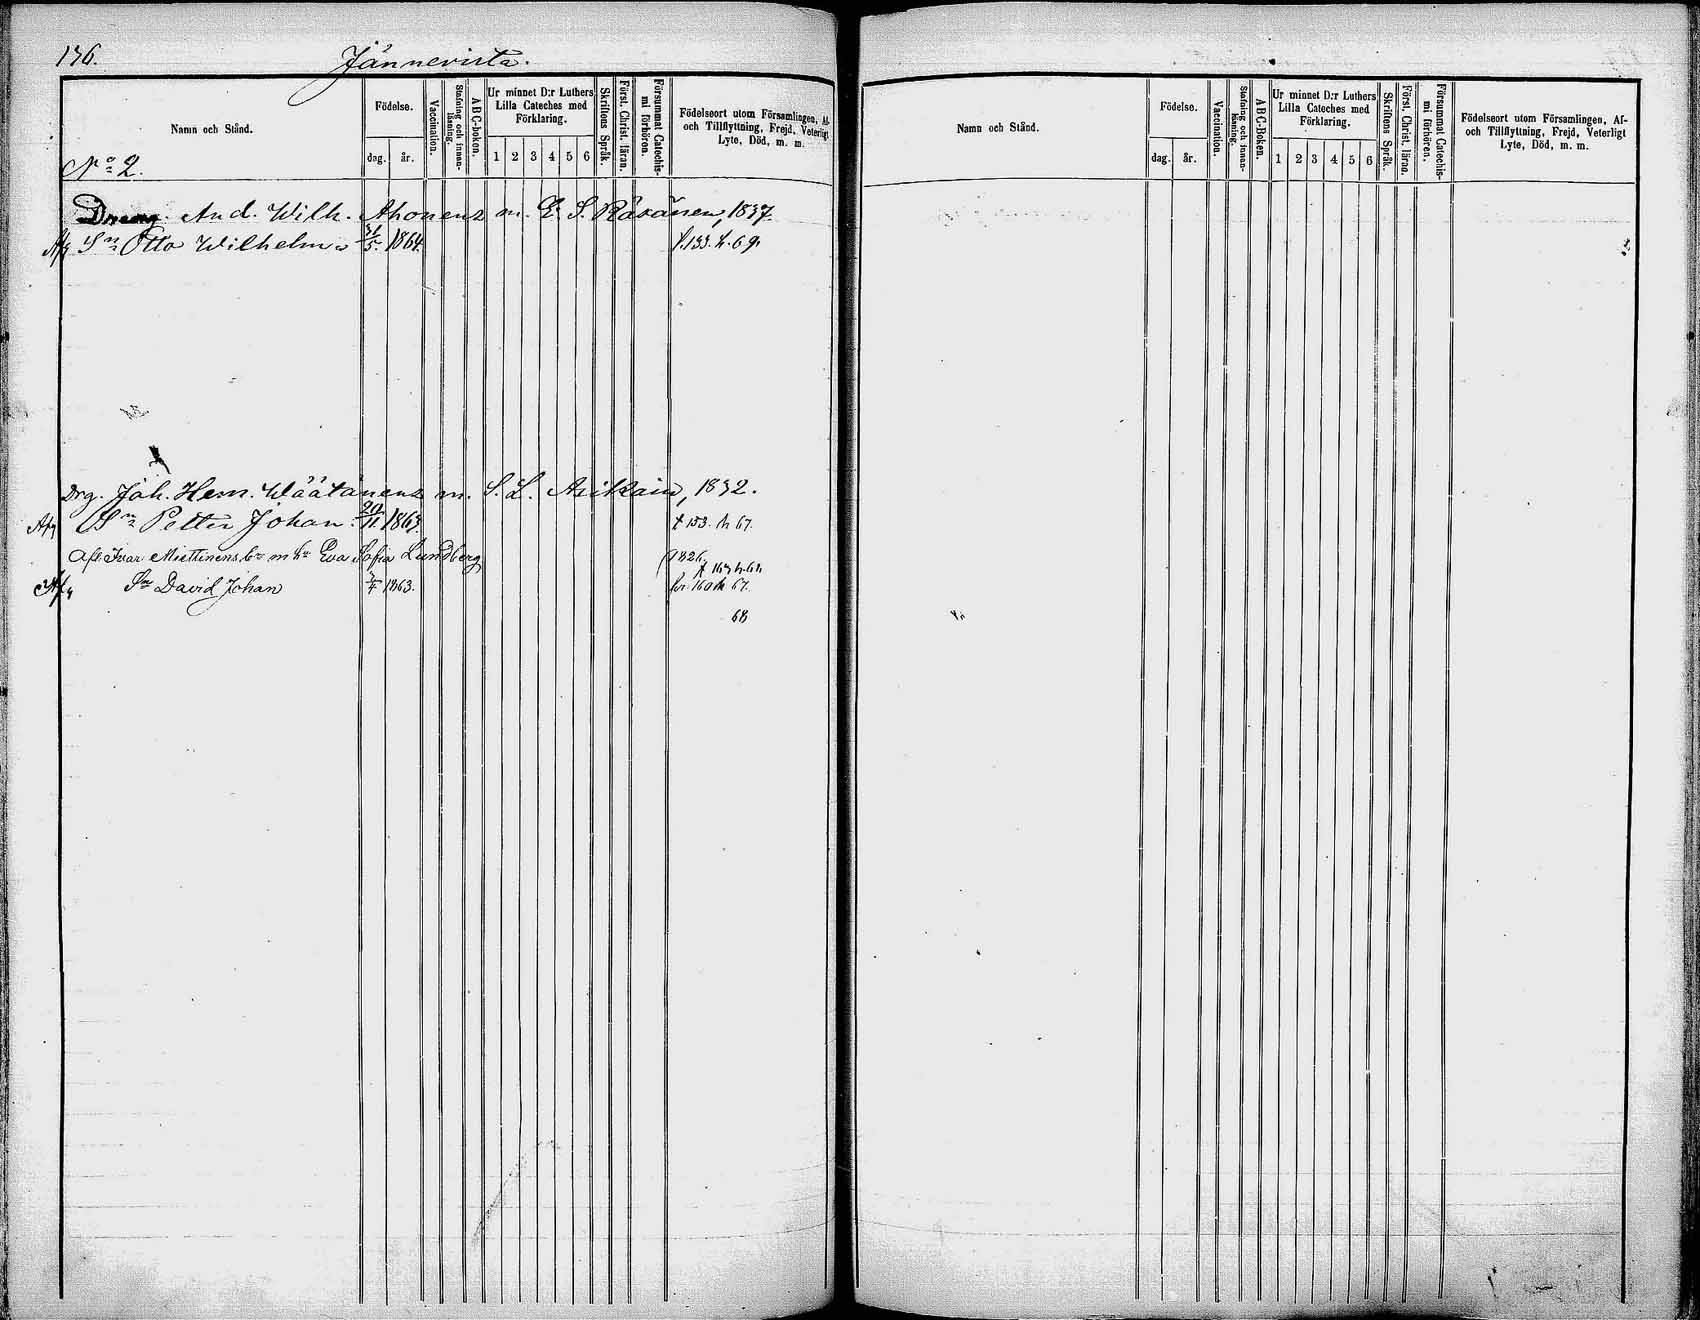 136.
Jännevirta.
Namn och Stånd.
Födelse.
dag. år.
Vaccination.
Stafning och innanläsning.
ABC-boken.
Ur minnet D:r Luthers
Lilla Cateches med
Förklaring.
1 2 3 4 5 6
Skriftens Språk.
Först. Christ. läran.
Försummat Catechismi förhören.
Födelseort utom Församlingen, Af-
och Tillflyttning, Frejd, Veterligt
Lyte, Död, m. m.
No 2.
Dreng. And. Wilh. Ahonens m. E. S. Räsänen, 1837.
Afg Sn Otto Wilhelm 31/5. 1864. f. 133. h. 69.
Drg. Joh. Hem. Wäätänens m. S. L. Asikain, 1832.
Afg Sn Petter Johan. 20/11 1863. f 153. h 67.
Afl. Ivar Miettinens br m hr Eva Sofia Lundberg 1826
Afg Sn David Johan 3/4 1863. 160 h 67.
68
Namn och Stånd.
Födelse.
dag. år.
Vaccination.
Stafning och innanläsning.
ABC-Boken.
Ur minnet D:r Luthers
Lilla Cateches med
Förklaring.
1 2 3 4 5 6
Skriftens Språk.
Först. Christ. läran.
Försummat Catechismi förhören.
Födelseort utom Församlingen, Af-
och Tillflyttning, Frejd, Veterligt
Lyte, Död, m. m.